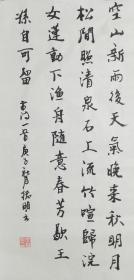 空山新雨後天氣晚來秋明月
松間照清泉石上流竹喧歸浣
女蓮動下漁舟隨意春芳歇王
孫自可留